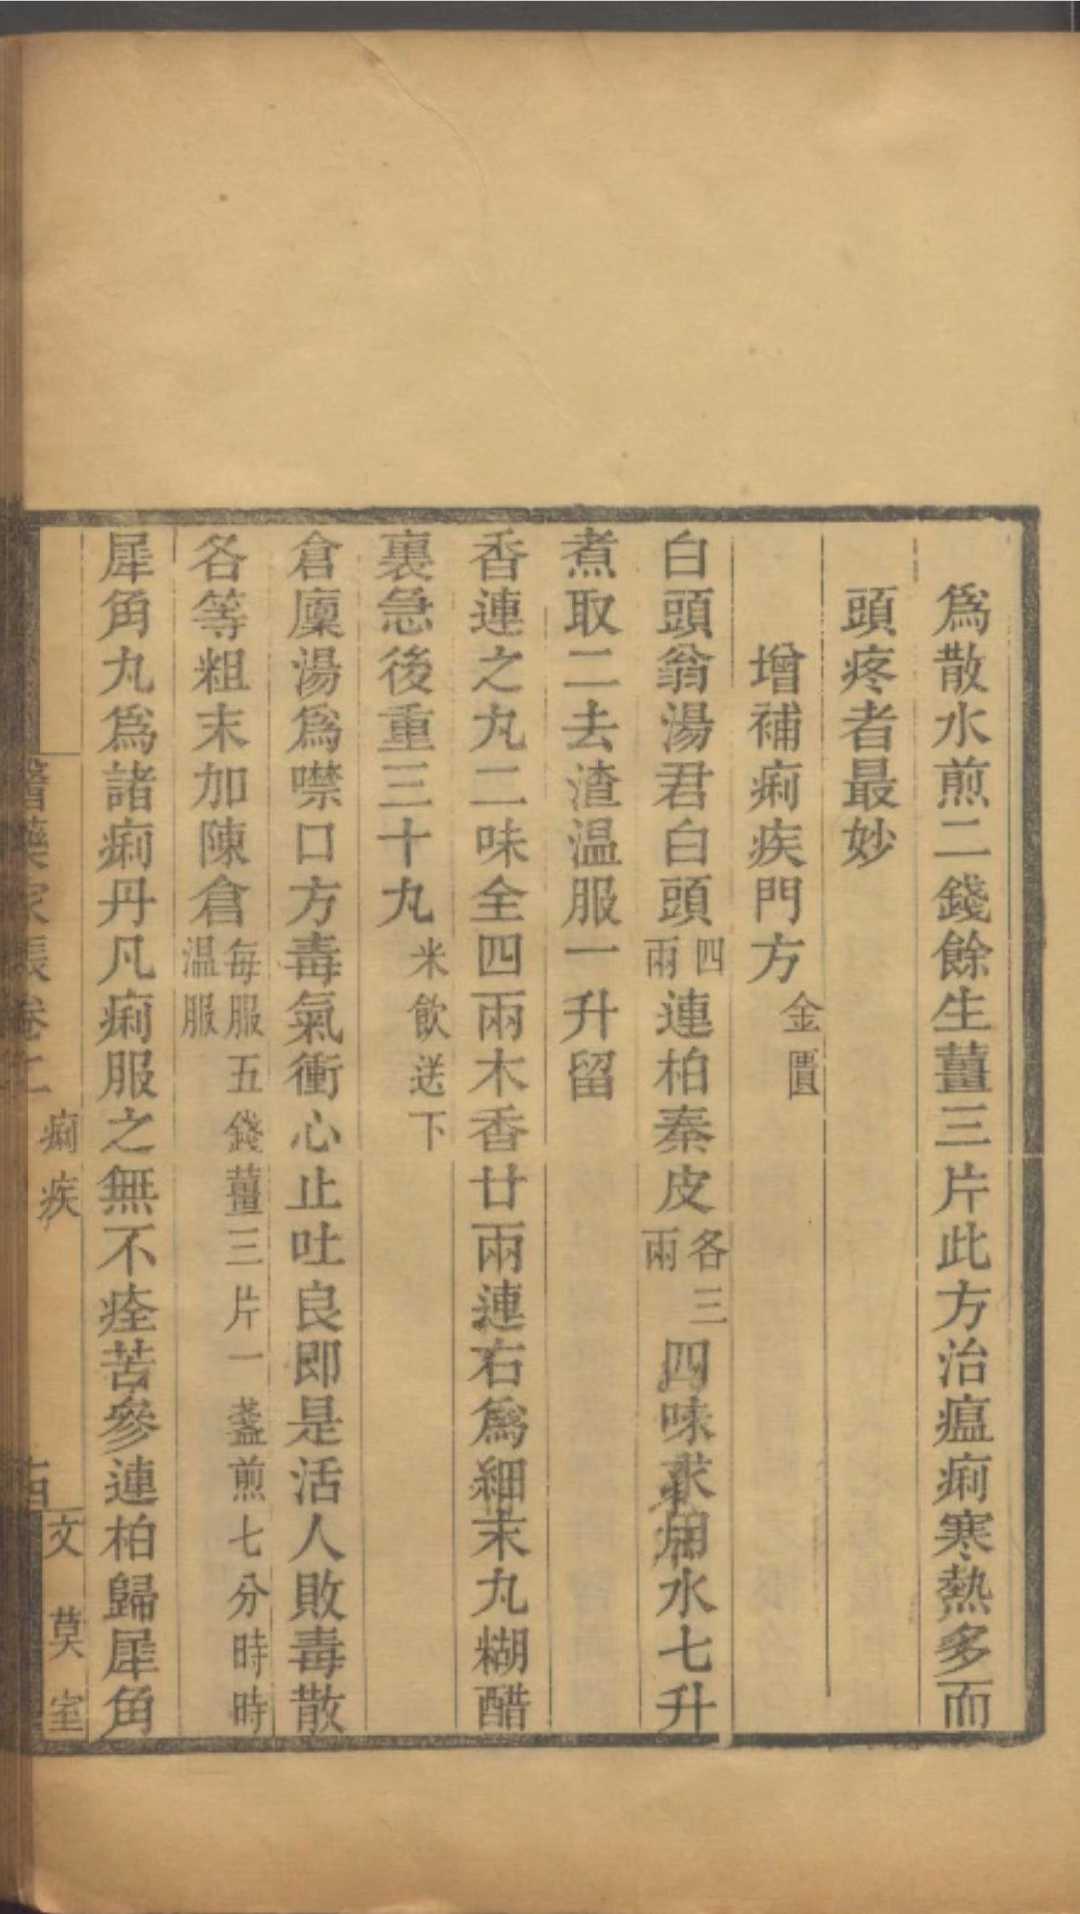 為散水煎二錢餘生薑三片此方治瘟痢寒熱多而
頭疼者最妙
增補痢疾門方金匱
白頭翁湯君白頭四兩連柏秦皮各三兩四味㕮用水七升
煮取二去渣温服一升留
香連之丸二味全四兩木香廿兩連右為細末丸糊醋
裏急後重三十丸米飲送下
倉廩湯為噤口方毒氣衝心止吐良即是活人敗毒散
各等粗末加陳倉每服五錢薑三片一盞煎七分時時温服
犀角丸為諸痢丹凡痢服之無不痊苦參連柏歸犀角
痢疾
文莫室